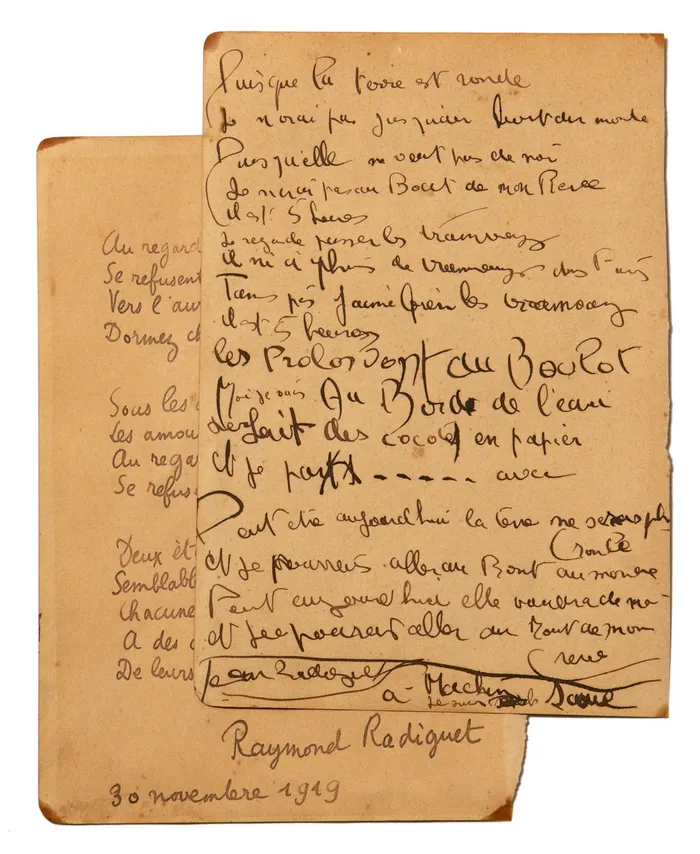 Puisque la terre est ronde
Je nirai pas jusquau bout du monde
Puisquelle ne veut pas de moi
Je nirai pas au Bout de mon Reve
il est 5 heures
Je regarde passer les tramways
il ni a plus de tramways dans Paris
Tans pis j'aime bien les tramways
il est 5 heures
les Prolos vont au Boulot
Moi je vais Au Bord de l'eau
fait des cocotes en papier
Et je parts ----- avec
Peut etre aujourdhui la terre ne sera plus
ronde
Et je pourrais aller au Bout du monde
Peut aujourdhui elle voudra de moi
Et je pourais aller au Bout de mon
reve
Radiguet
a Machin
Je suis Saoul
Au regard
Se refusent
Vers l'au
Dormez
Sous les
Les amou
Au rega
Se refus
Deux êt
Semblabl
Chacune
A des
De leurs
Raymond Radiguet
30 novembre 1919